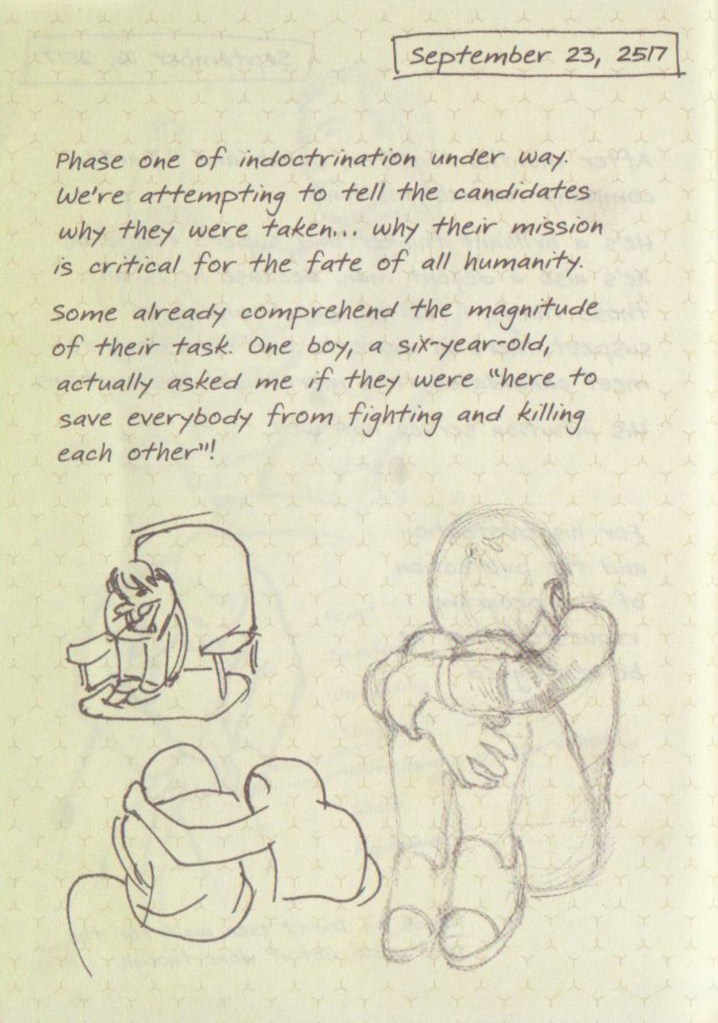 September 23, 2517
Phase one of indoctrination under way.
We're attempting to tell the candidates
why they were taken... why their mission
is critical for the fate of all humanity.
Some already comprehend the magnitude
of their task. One boy, a six-year-old,
actually asked me if they were "here to
save everybody from fighting and killing
each other"!